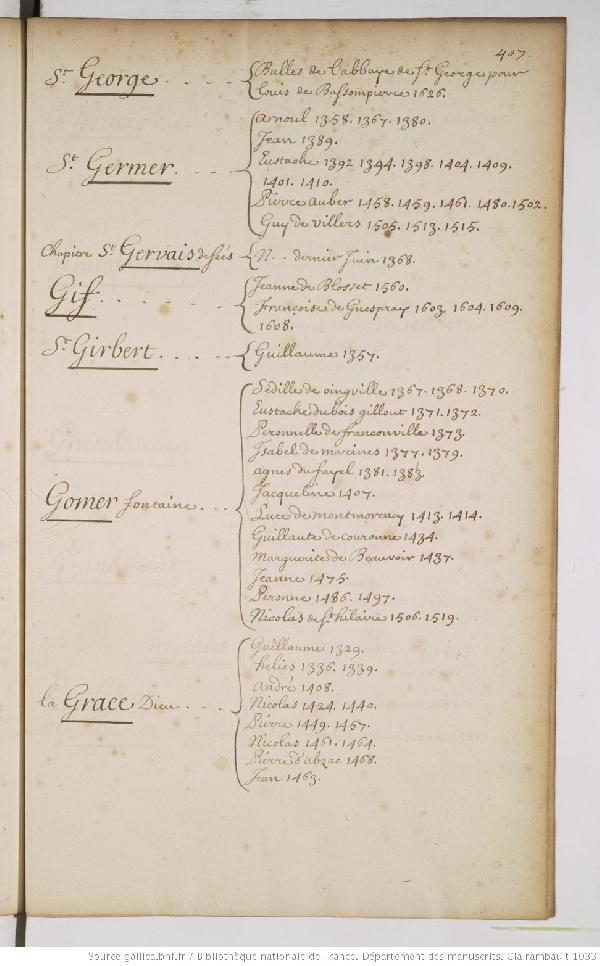 407.
St George . . . . Bulles de l'abbaye de st George pour
Louis de Bassompierre 1626.
St Germer . . . Arnoul 1358. 1367. 1380.
Jean 1389.
Eustache 1392 1394. 1398. 1404. 1409.
1401. 1410.
Pierre Auber 1458. 1459. 1461. 1480. 1502.
Guy de villers 1505. 1513. 1515.
Chapitre St Gervais de Séés N. . dernier Juin 1368.
Gif . . . . Jeanne de Blosset 1560.
Françoise de Guespray 1603. 1604. 1609.
1608.
St Girbert . . . . Guillaume 1357.
Gomer fontaine . . . Sedille de oingville 1367. 1368. 1370.
Eustache du bois gillout 1371. 1372.
Peronnelle de franconville 1373.
Isabel de marines 1377. 1379.
agnes du fayel 1381. 1383.
Jacqueline 1407.
Luce de montmorency 1413. 1414.
Guillaute de couronne 1434.
Marguerite de Beauvoir 1437.
Jeanne 1475.
Peronne 1486. 1497.
Nicolas de st hilaire 1506. 1519.
la Grace Dieu . . . Guillaume 1329.
helies 1336. 1339.
André 1408.
Nicolas 1424. 1440.
Pierre 1449. 1457.
Nicolas 1461. 1464.
Pierre d'abzac 1468.
Jean 1463.
Source gallica.bnf.fr / Bibliothèque nationale de France. Département des manuscrits. Clairambault 1033